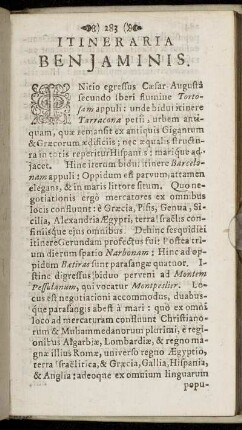 283
ITINERARIA
BENJAMINIS.
INitio egressus Cæsar-Augustâ
secundo Iberi flumine Torto-
sam appuli: unde bidui itinere
Tarracona petii, urbem anti-
quam, quæ remansit ex antiquis Gigantum
& Græcorum ædificiis; nec æqualis structu-
ra in totis reperitur Hispaniis: marique ad-
jacet. Hinc iterum bidui itinere Barcelo-
nam appuli: Oppidum est parvum, attamen
elegans, & in maris littore situm. Quo ne-
gotiationis ergô mercatores ex omnibus
locis confluunt: è Græcia, Pisis, Genua, Si-
cilia, Alexandria Ægypti, terra Israelis con-
finiisque ejus omnibus. Dehinc sesquidiei
itinere Gerundam profectus fui: Postea tri-
um dierum spatio Narbonam; Hinc ad op-
pidum Betiras sunt parasangæ quatuor. I-
stinc digressus, biduo perveni ad Montem
Pessulanum, qui vocatur Montpelier. Lo-
cus est negotiationi accommodus, duabus-
que parasangis abest à mari: quò ex omni
loco ad mercaturam confluunt Christianô-
rum & Muhammedanorum plurimi, è regi-
onibus Algarbiæ, Lombardiæ, & regno ma-
gnæ illius Romæ, universo regno Ægyptio,
terra Israelitica, & Græcia, Gallia, Hispania,
& Anglia: adeoque ex omnium linguarum
popu-